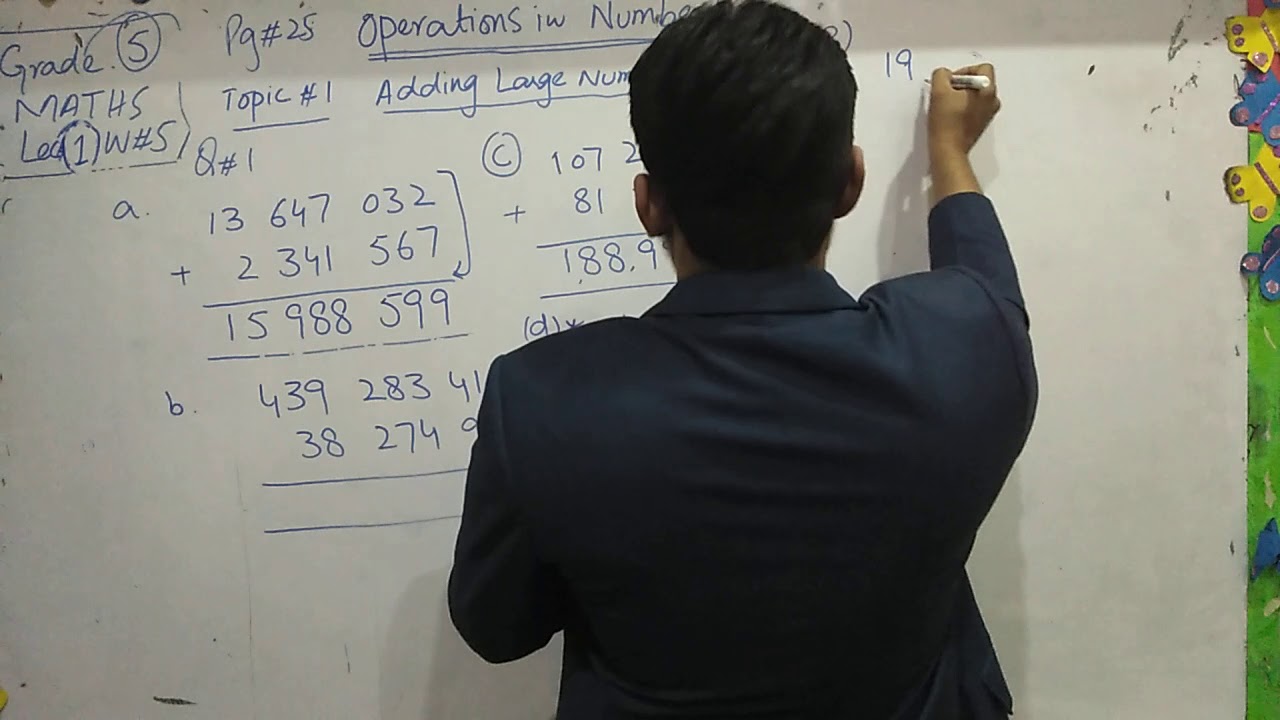 Grade.⑤
Pg#25
Operations in Numbe
MATHS
Lec(1) W#5
Topic #1
Adding Large Num
Q#1
a.
13 647 032
+ 2 341 567
15 988 599
b.
439 283 41
38 274
Ⓒ
107 2
+ 81
188.9
(d)
19